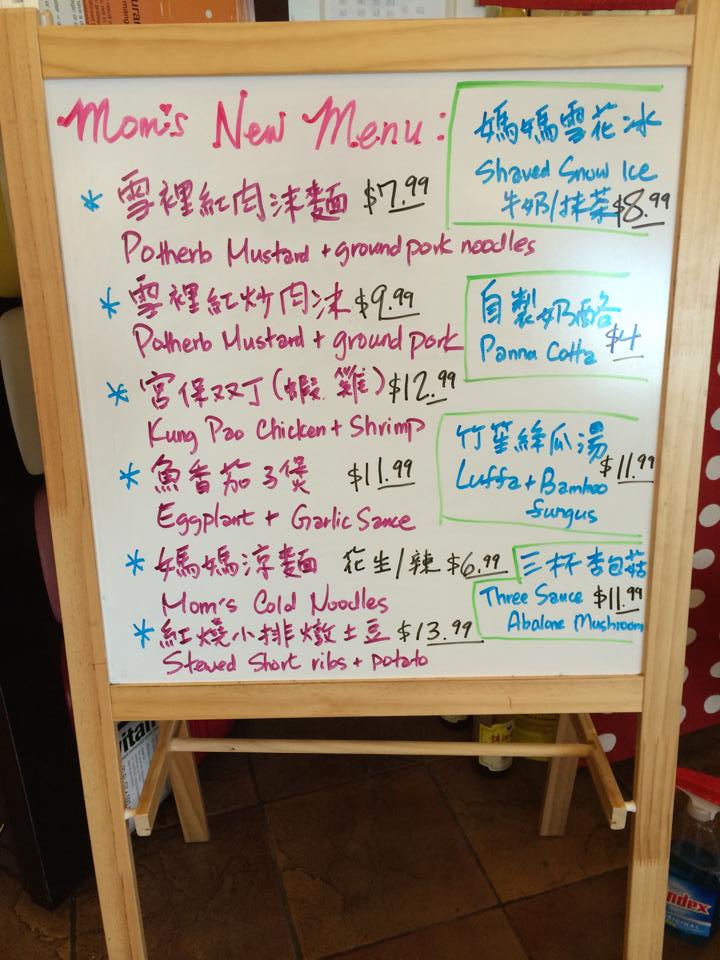 Mom's New Menu:
* 雪裡紅肉沫麵 $7.99
Potherb Mustard + ground pork noodles
* 雪裡紅炒肉沫 $9.99
Potherb Mustard + ground pork
* 宮保双丁(蝦.雞) $12.99
Kung Pao Chicken + Shrimp
* 魚香茄子煲 $11.99
Eggplant + Garlic Sauce
* 媽媽涼麵 花生/辣 $6.99
Mom's Cold Noodles
* 紅燒小排燉土豆 $13.99
Stewed Short ribs + potato
媽媽雪花冰
Shaved Snow Ice
牛奶/抹茶 $8.99
自製奶酪
Panna Cotta $4
竹笙絲瓜湯
$11.99
Luffa + Bamboo
fungus
三杯杏包菇
Three Sauce $11.99
Abalone Mushroom
ndex